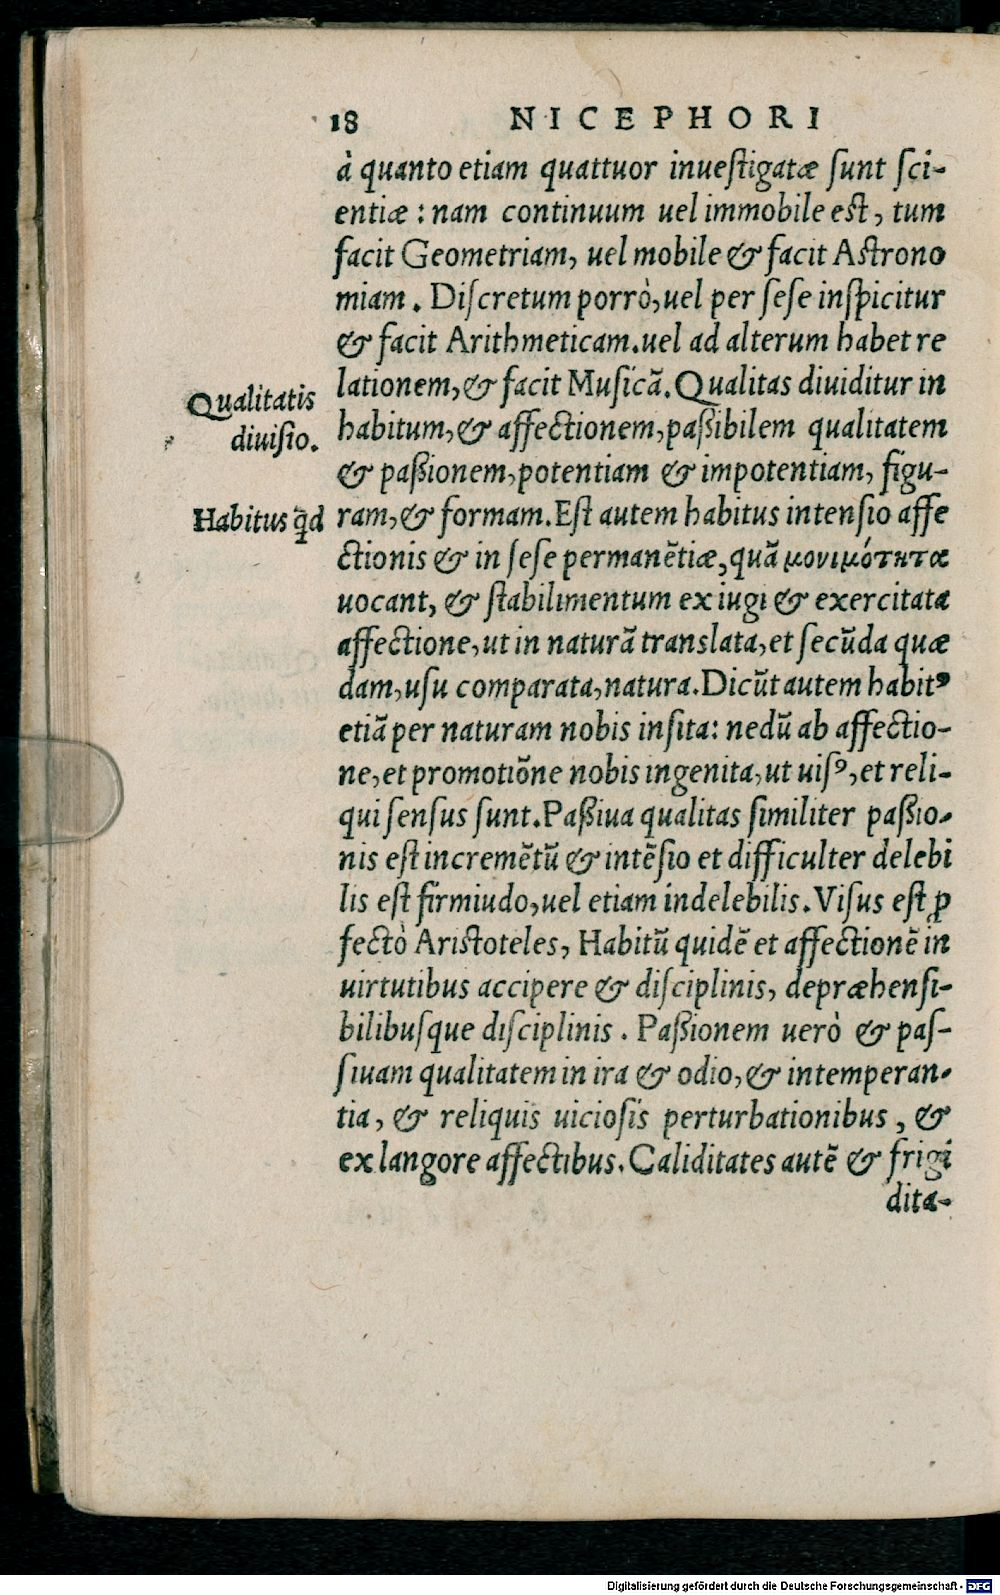 18 NICEPHORI
à quanto etiam quattuor inuestigatæ sunt sci-
entiæ : nam continuum uel immobile est, tum
facit Geometriam, uel mobile & facit Astrono
miam. Discretum porrò, uel per sese inspicitur
& facit Arithmeticam. uel ad alterum habet re
lationem, & facit Musicã. Qualitas diuiditur in
Qualitatis
diuisio.
habitum, & affectionem, paßibilem qualitatem
& paßionem, potentiam & impotentiam, figu-
Habitus q̃d
ram, & formam. Est autem habitus intensio affe
ctionis & in sese permanẽtiæ, quã μονιμότητα
uocant, & stabilimentum ex iugi & exercitata
affectione, ut in naturã translata, et secũda quæ
dam, usu comparata, natura. Dicũt autem habitꝰ
etiã per naturam nobis insita: nedũ ab affectio-
ne, et promotiõne nobis ingenita, ut uisꝰ, et reli-
qui sensus sunt. Paßiua qualitas similiter paßio-
nis est incremẽtũ & intẽsio et difficulter delebi
lis est firmiudo, uel etiam indelebilis. Visus est ꝓ
fectò Aristoteles, Habitũ quidẽ et affectionẽ in
uirtutibus accipere & disciplinis, depræhensi-
bilibusque disciplinis. Paßionem uerò & pas-
siuam qualitatem in ira & odio, & intemperan-
tia, & reliquis uiciosis perturbationibus, &
ex langore affectibus. Caliditates autẽ & frigi
dita-
Digitalisierung gefördert durch die Deutsche Forschungsgemeinschaft - DFG